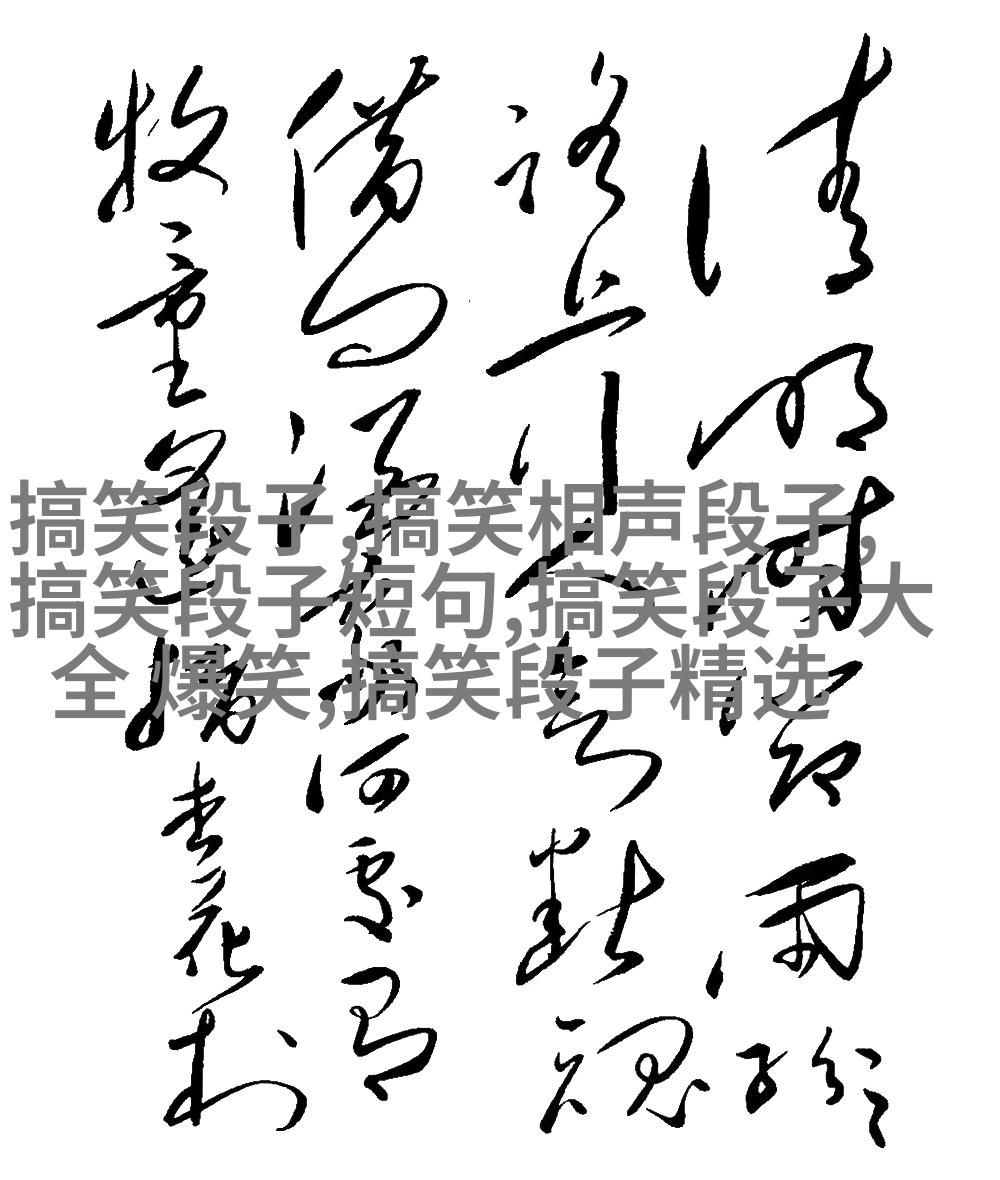 清明時節雨紛紛
路上行人欲斷魂
借問酒家何處有
牧童遙指杏花村
搞笑段子,搞笑相声段子,
搞笑段子短句,搞笑段子大
全 爆笑,搞笑段子精选